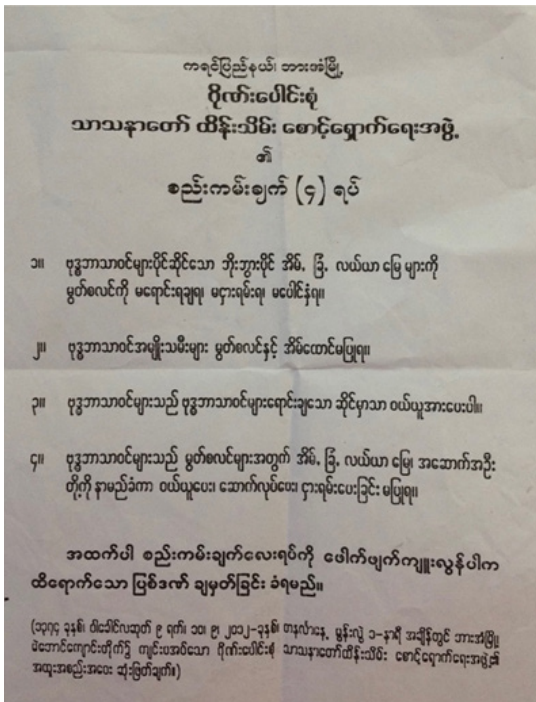 ကရင်ပြည်နယ်၊ ဘားအံမြို့
ဂိုဏ်းပေါင်းစုံ
သာသနာတော် ထိန်းသိမ်း စောင့်ရှောက်ရေးအဖွဲ့
၏
စည်းကမ်းချက် (၄) ရပ်
၁။ ဗုဒ္ဓဘာသာဝင်များပိုင်ဆိုင်သော ဘိုးဘွားပိုင် အိမ်, ခြံ, လယ်ယာ မြေ များကို
မွတ်စလင်ကို မရောင်းရချရ၊ မငှားရမ်းရ၊ မပေါင်နှံရ။
၂။ ဗုဒ္ဓဘာသာဝင်အမျိုးသမီးများ မွတ်စလင်နှင့် အိမ်ထောင်မပြုရ။
၃။ ဗုဒ္ဓဘာသာဝင်များသည် ဗုဒ္ဓဘာသာဝင်များရောင်းချသော ဆိုင်မှာသာ ဝယ်ယူအားပေးပါ။
၄။ ဗုဒ္ဓဘာသာဝင်များသည် မွတ်စလင်များအတွက် အိမ်, ခြံ, လယ်ယာ မြေ၊ အဆောက်အဦး
တို့ကို နာမည်ခံကာ ဝယ်ယူပေး၊ ဆောက်လုပ်ပေး၊ ငှားရမ်းပေးခြင်း မပြုရ။
အထက်ပါ စည်းကမ်းချက်လေးရပ်ကို ဖေါက်ဖျက်ကျူးလွန်ပါက
ထိရောက်သော ပြစ်ဒဏ် ချမှတ်ခြင်း ခံရမည်။
(၁၃၇၄ ခုနှစ်၊ ဝါခေါင်လဆုတ် ၉ ရက်၊ ၁၀၊ ၉၊ ၂၀၁၂-ခုနှစ်၊ တနင်္လာနေ့, မွန်းလွဲ ၁-နာရီ အချိန်တွင် ဘားအံမြို့၊
မဲဘောင်ကျောင်းတိုက်၌ ကျင်းပအပ်သော ဂိုဏ်းပေါင်းစုံ သာသနာတော်ထိန်းသိမ်း စောင့်ရှောက်ရေးအဖွဲ့၏
အထူးအစည်းအဝေး ဆုံးဖြတ်ချက်။)